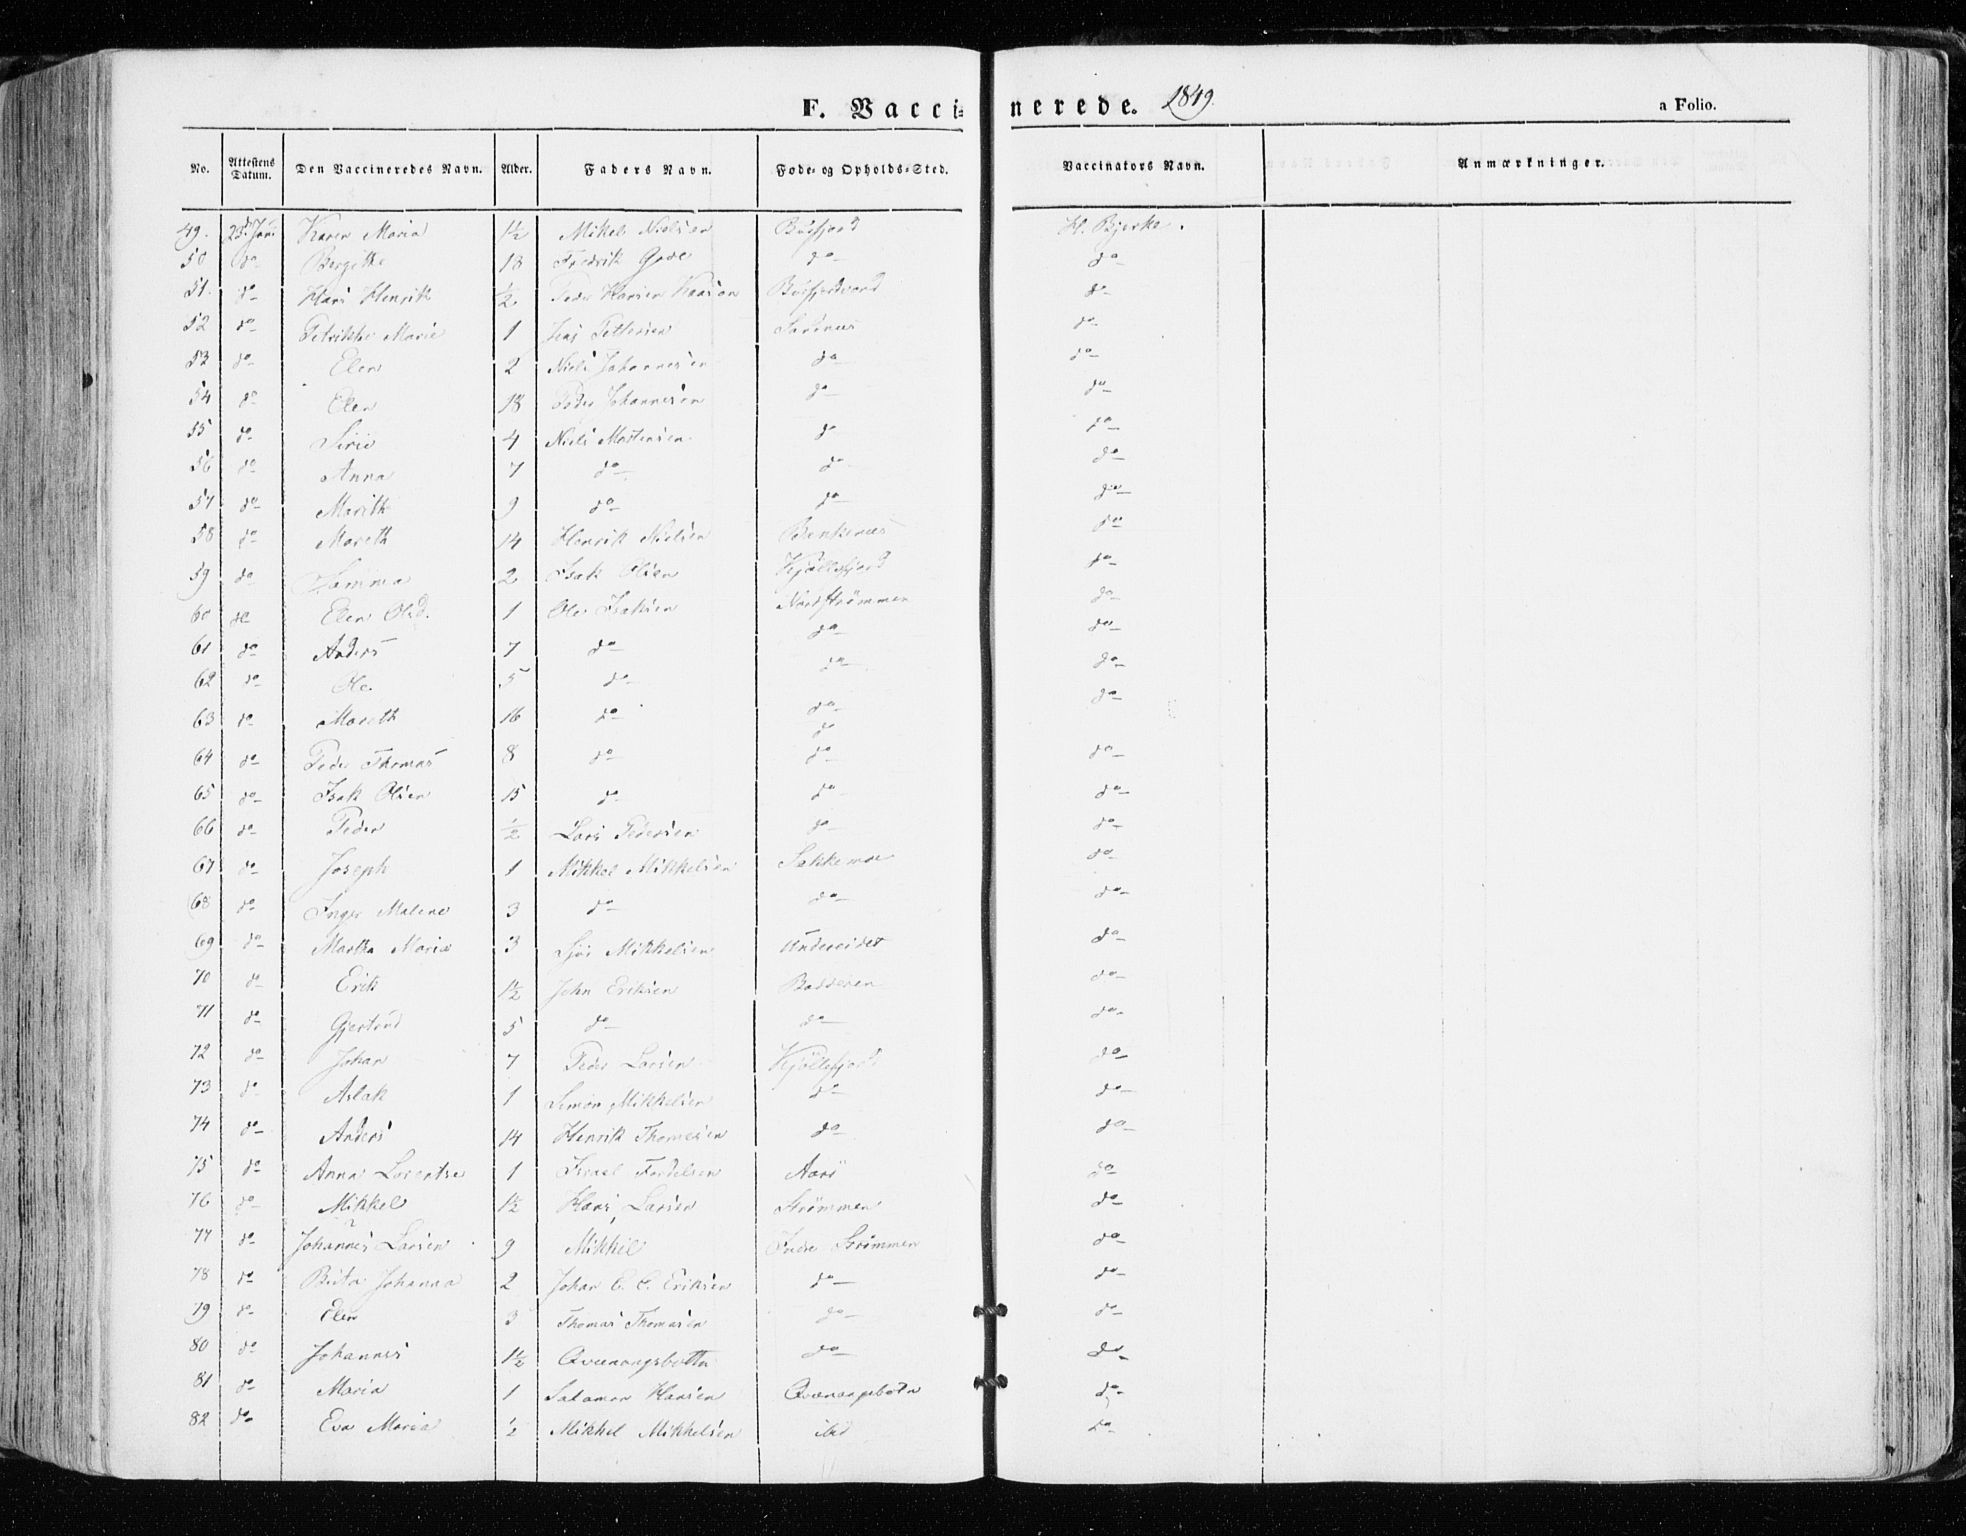 F. Vaccinerede. 1849.
a Folio.
No. Attestens Datum. Den Vaccineredes Navn. Alder. Faders Navn. Føde- og Opholds-Sted. Vaccinators Navn. Anmærkninger.
49. 23d Jan: Karen Maria 1½ Mikel Nielsen H. Bjerke.
50 do Bergithe 18 Fredrik do do
51. do Hans Henrik ½ Peder Hansen do
52 do Petrikke Marie 1 Jens Pettersen do
53 do Elen 2 Niels Johannesen do do
54 do Elen 18 Peder Johannesen do do
55 do Sirie 4 Niels Mortensen do do
56 do Anna 7 do do do
57 do Marith 9 do do do
58 do Mareth 14 Henrik Nielsen do
59 do 2 Isak Olsen Kjøllefjord do
60 do Elen Olsd. 1 Ole Isaksen Nordstrømmen do
61 do Anders 7 do do do
62 do Ole. 5 do do do
63 do Mareth 16 do do do
do
64 do Peder Thomas 8 do do do
65 do Isak Olsen 15 do do do
66 do Peder ½ Lars Pedersen do do
67 do Joseph 1 Mikkel Mikkelsen Sakkemoe do
68 do Inger Malene 3 do do do
69 do Martha Maria 3 Mikkelsen Undereidet do
70 do Erik 1½ John Eriksen Badderen do
71 do Gjertrud 5 do do do
72 do Johan 7 Peder Larsen Kjøllefjord do
73 do Aslak 1 Simon Mikkelsen do do
74 do Anders 14 Henrik Thomesen do do
75 do Anna Lorentse 1 Israel do
76 do Mikkel 1½ Hans Larsen Strømmen do
77 do Johannes Larsen 9 Mikkel Indre Strømmen do
78 do Johanna 2 Johan C. C. Eriksen do do
79 do Elen 3 Thomas Thomasen do do
80 do Johannes 1½ Qvænangsbotta do do
81 do Maria 1 Salamon Hansen Qvænangsbotn do
82 do Eva Maria ½ Mikkel Mikkelsen ibid do